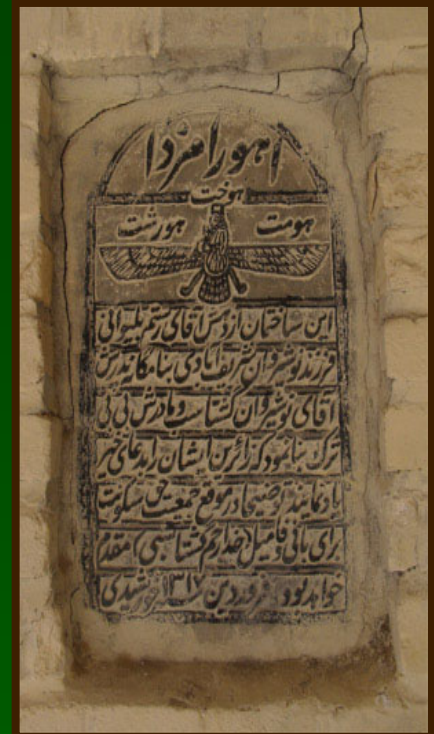 اهورامزدا
هوخت
هومت هورشت
این ساختمان از دهش آقای رستم پلیوانی
فرزند نوشیروان شریف ابادی بنامگانه پدرش
آقای نوشیروان گشتاسب و مادرش بی بی
ترک بنا نمود که زائرین ایشان را بدعای خیر
یاد نمایند توضیحا در موقع جمعیت حق سکونت
برای بانی و فامیل (خدارحم گشتاسبی) مقدم
خواهد بود فروردین ۱۳۱۷ خورشیدی